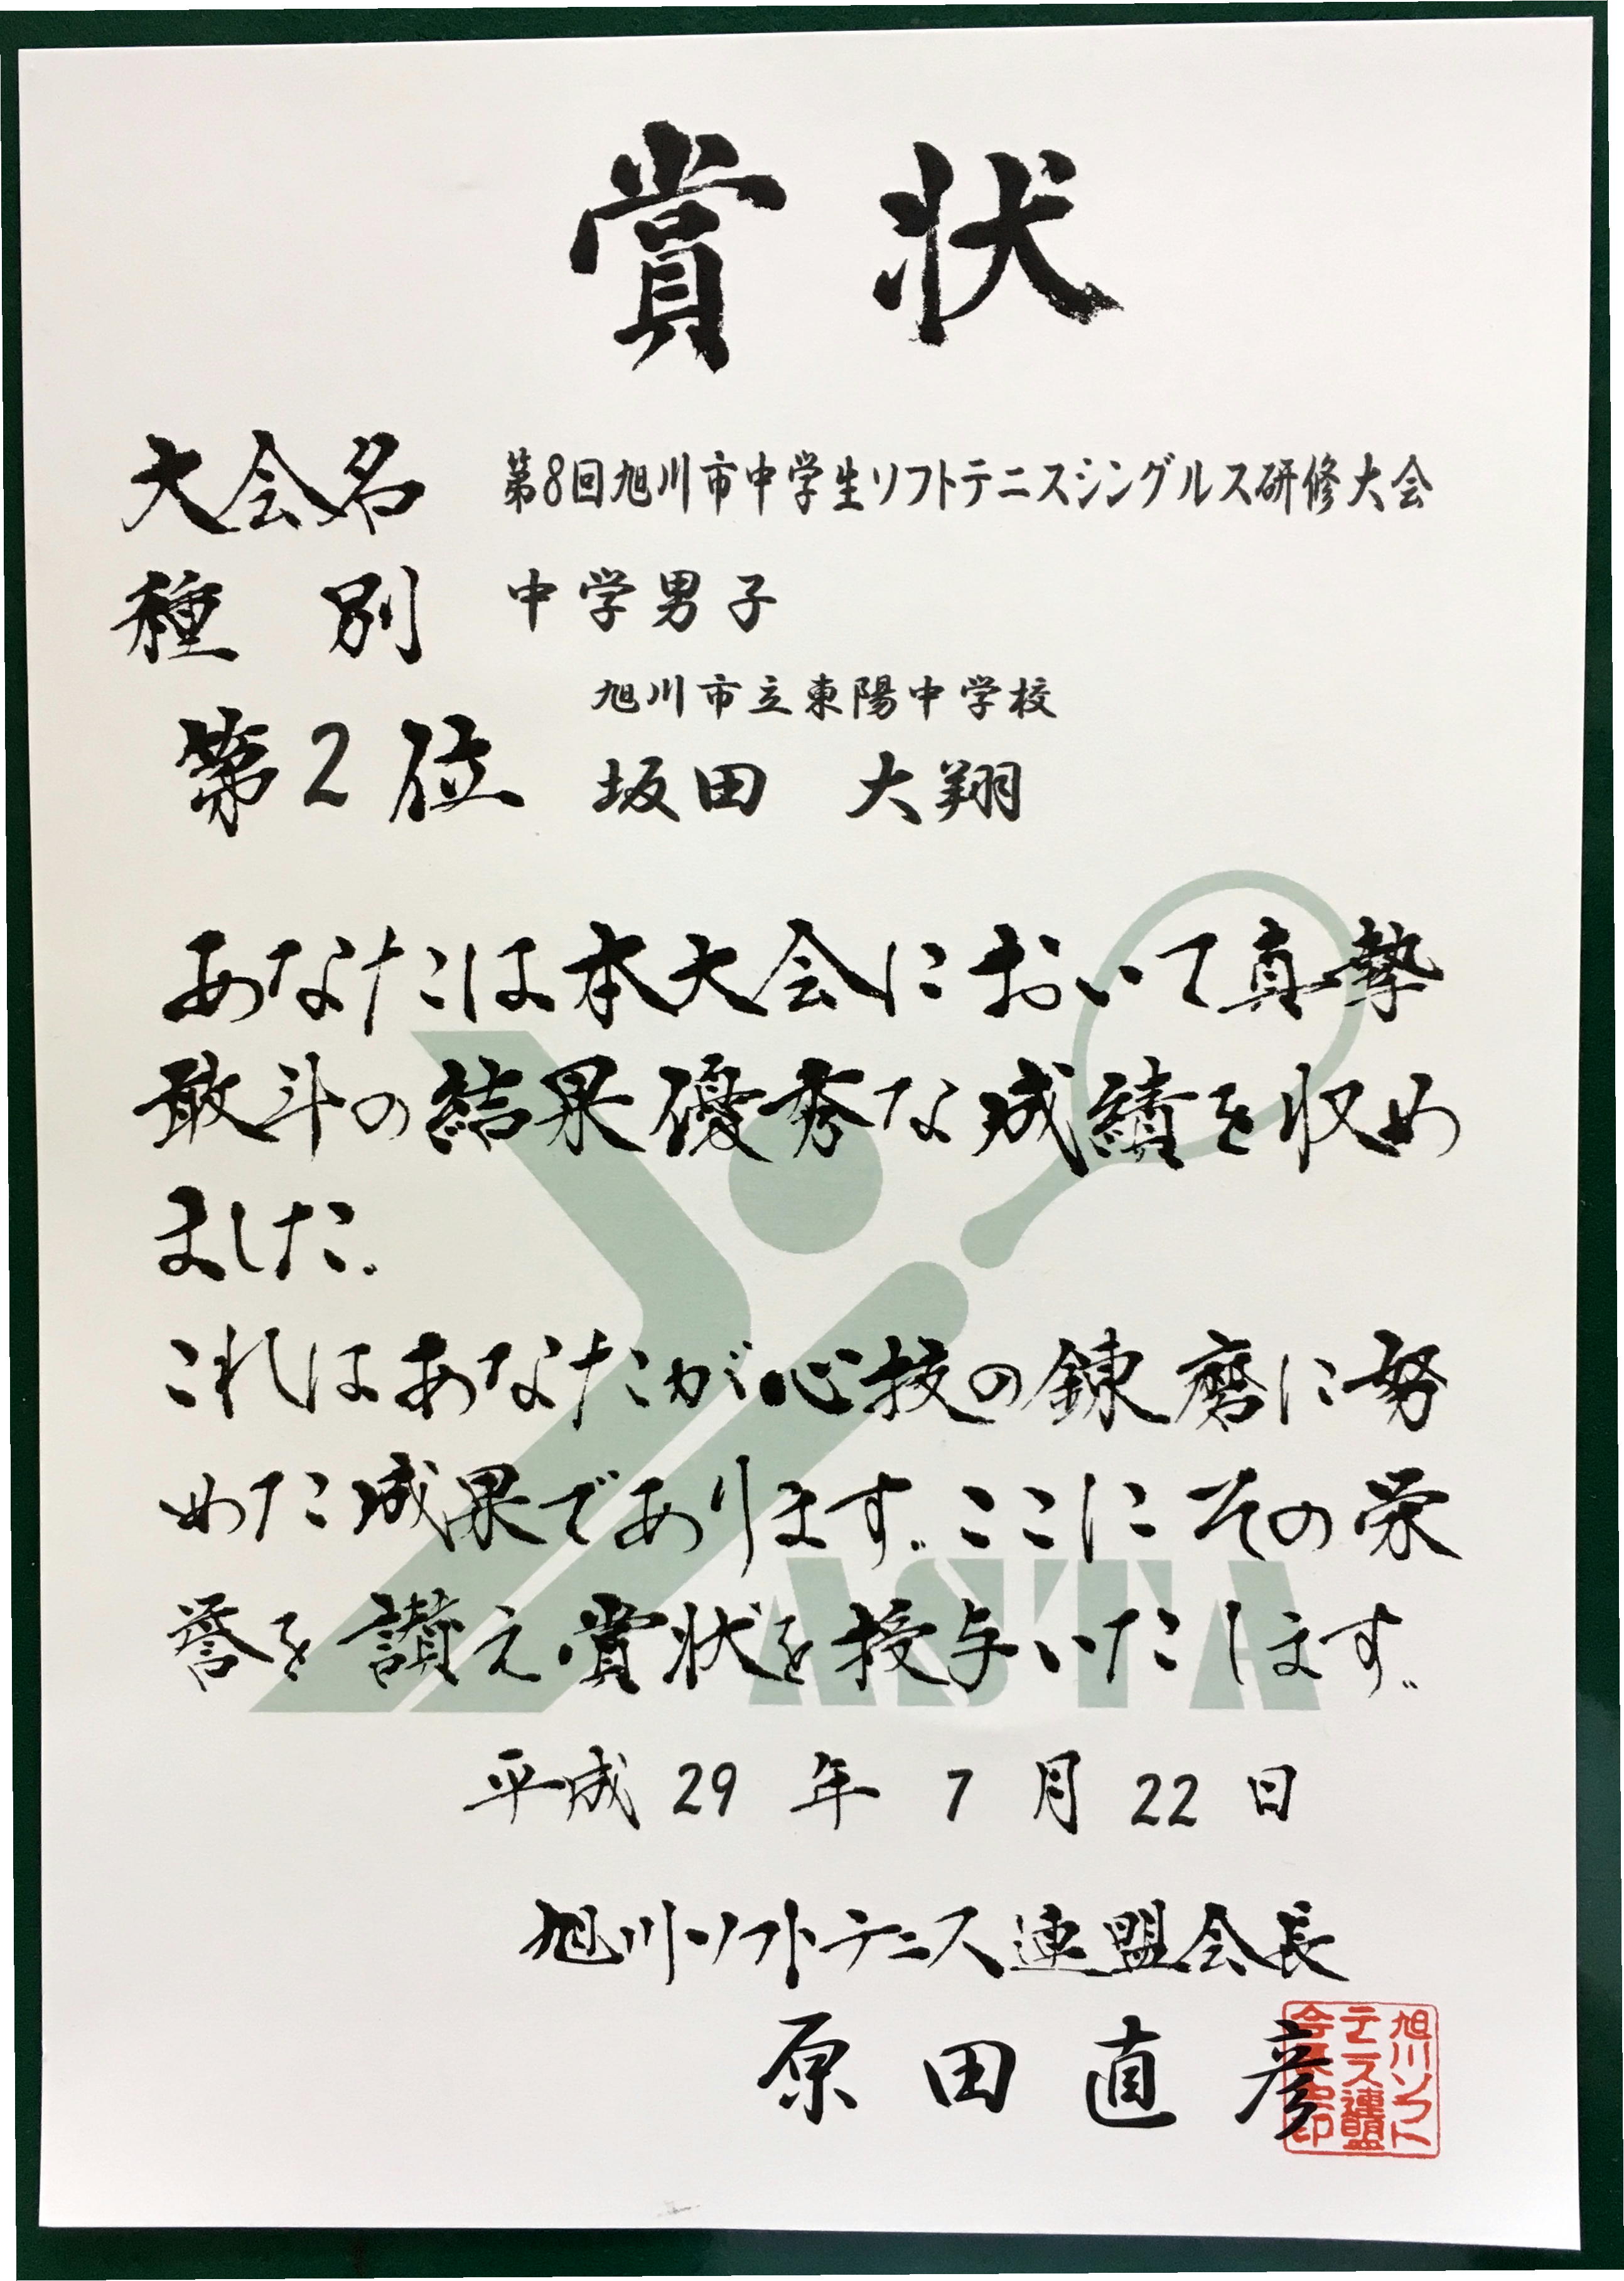 賞状
大会名 第8回旭川市中学生ソフトテニスシングルス研修大会
種別 中学男子
旭川市立東陽中学校
第2位 坂田 大翔
あなたは本大会において真摯
敢斗の結果優秀な成績を収め
ました。
これはあなたが心技の錬磨に努
めた成果であります。ここにその栄
誉を讃え賞状を授与いたします。
ASTA
平成 29 年 7 月 22 日
旭川ソフトテニス連盟会長
原田直彦
旭川ソフト
テニス連盟
会長之印